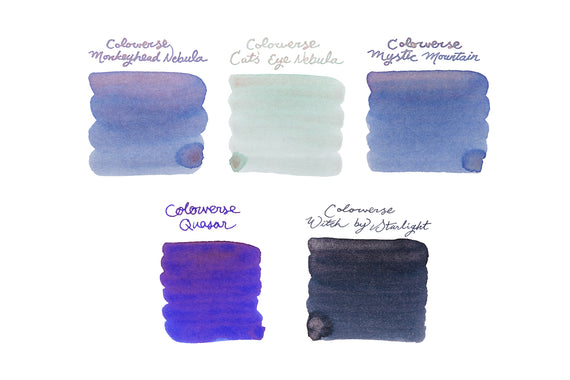 Colorverse
Monkeyhead Nebula
Colorverse
Cat's Eye Nebula
Colorverse
Mystic Mountain
Colorverse
Quasar
Colorverse
Witch by Starlight